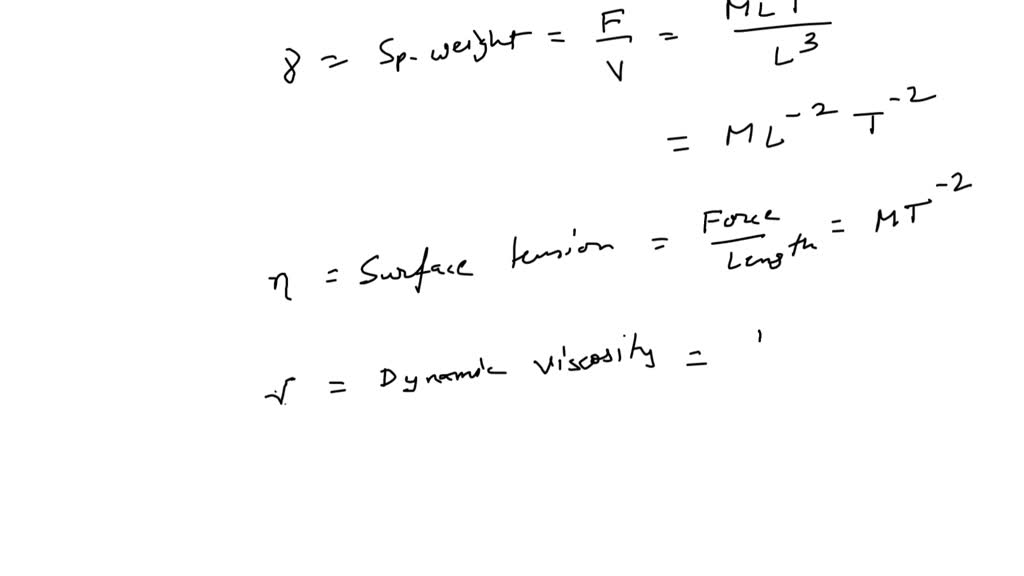 γ = Sp. weight = F/V = MLT/L³
= ML⁻² T⁻²
η = Surface tension = Force/Length = MT⁻²
= Dynamic viscosity =